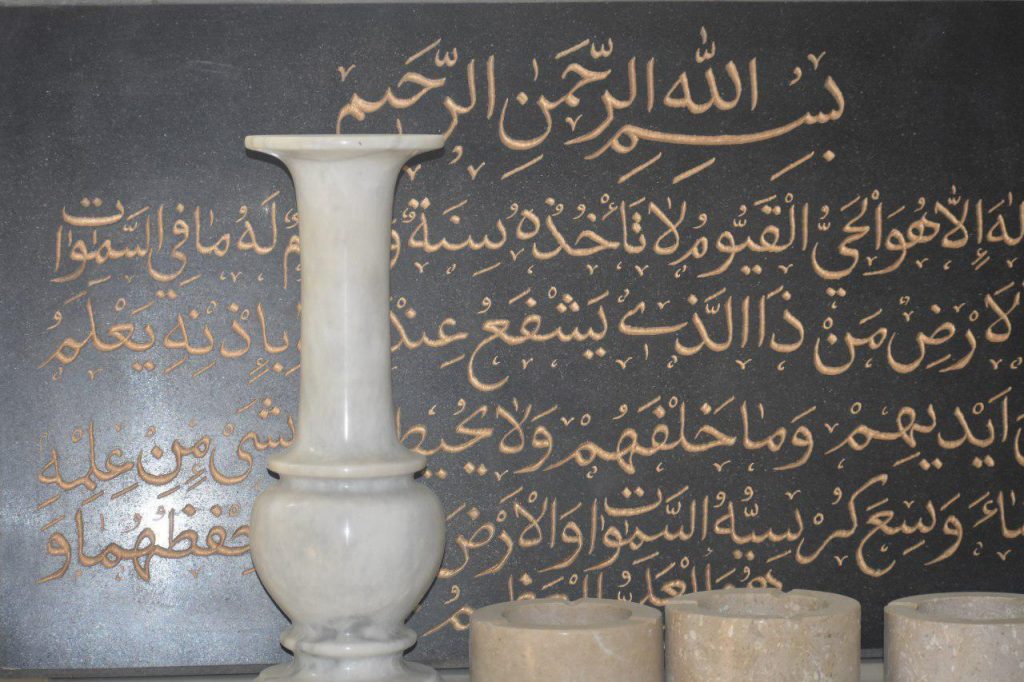 بِسْمِ اللهِ الرَّحْمٰنِ الرَّحِيمِ
اِلٰهَ اِلَّا هُوَ الْحَيُّ الْقَيُّومُ لَا تَأْخُذُهُ سِنَةٌ لَهُ مَا فِي السَّمٰوَاتِ
الْاَرْضِ مَنْ ذَا الَّذِي يَشْفَعُ بِإِذْنِهِ يَعْلَمُ
اَيْدِيهِمْ وَمَا خَلْفَهُمْ وَلَا يُحِيطُ بِشَيْءٍ مِنْ عِلْمِهِ
وَسِعَ كُرْسِيُّهُ السَّمٰوَاتِ وَالْاَرْضَ حِفْظُهُمَا وَ
هُوَ الْعَلِيُّ الْعَظِيمُ